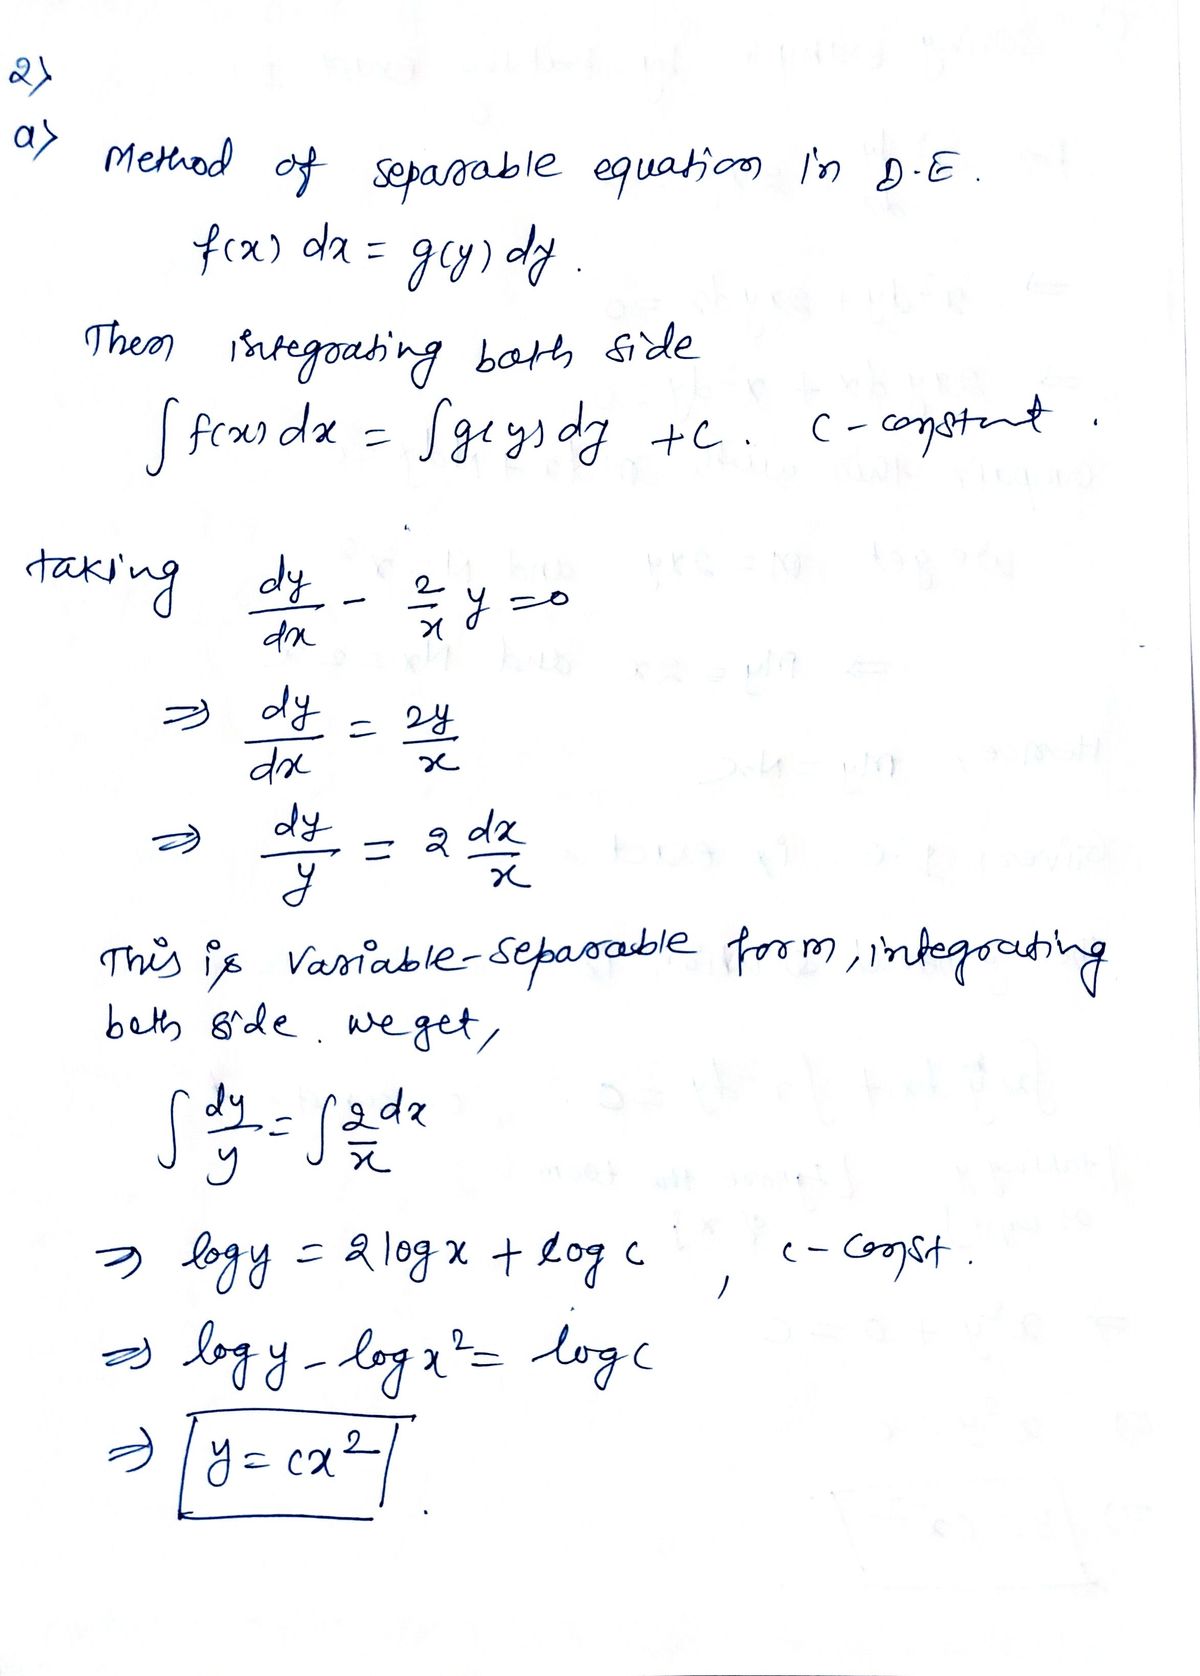 2>
a> Method of separable equation in D.E.
f(x) dx = g(y) dy.
Then integrating both side
∫ f(x) dx = ∫ g(y) dy + c. c - constant.
taking dy/dx - 2/x y = 0
⇒ dy/dx = 2y/x
⇒ dy/y = 2 dx/x
This is variable-separable form, integrating
both side. we get,
∫ dy/y = ∫ 2/x dx
⇒ log y = 2 log x + log c, c - const.
⇒ log y - log x² = log c
⇒ y = cx².